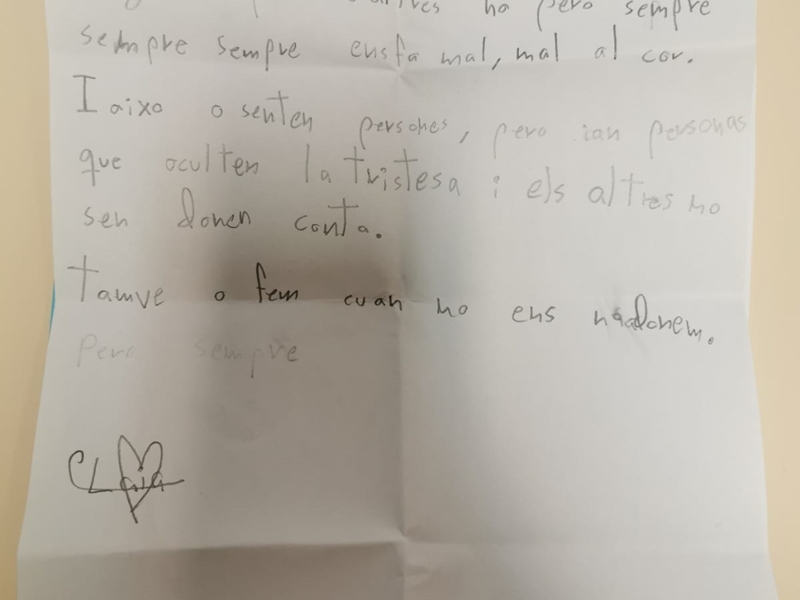 no pero sempre
sempre sempre ensfa mal, mal al cor.
I aixo o senten persones, pero ian personas
que oculten la tristesa i els altres no
sen donen conta.
Tamve o fem cuan no ens nadonem.
Pero sempre